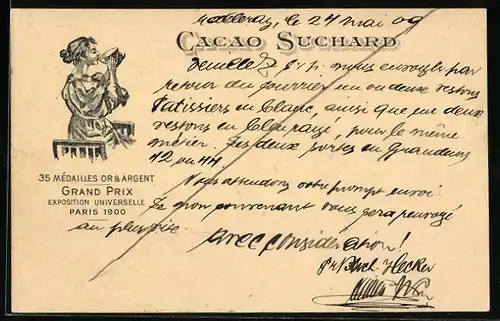 le 24 Mai 09
CACAO SUCHARD
Veuillez s. v. p. nous envoyer par
retour du courrier un ou deux vestons
Patissiers en blanc, ainsi que un ou deux
vestons en , pour le même
métier. Les deux sortes en grandeurs
42 ou 44.
Nous attendons votre prompt envoi.
Le non convenant vous sera renvoyé
au plus vite.
Avec considération!
35 MÉDAILLES OR & ARGENT
GRAND PRIX
EXPOSITION UNIVERSELLE
PARIS 1900